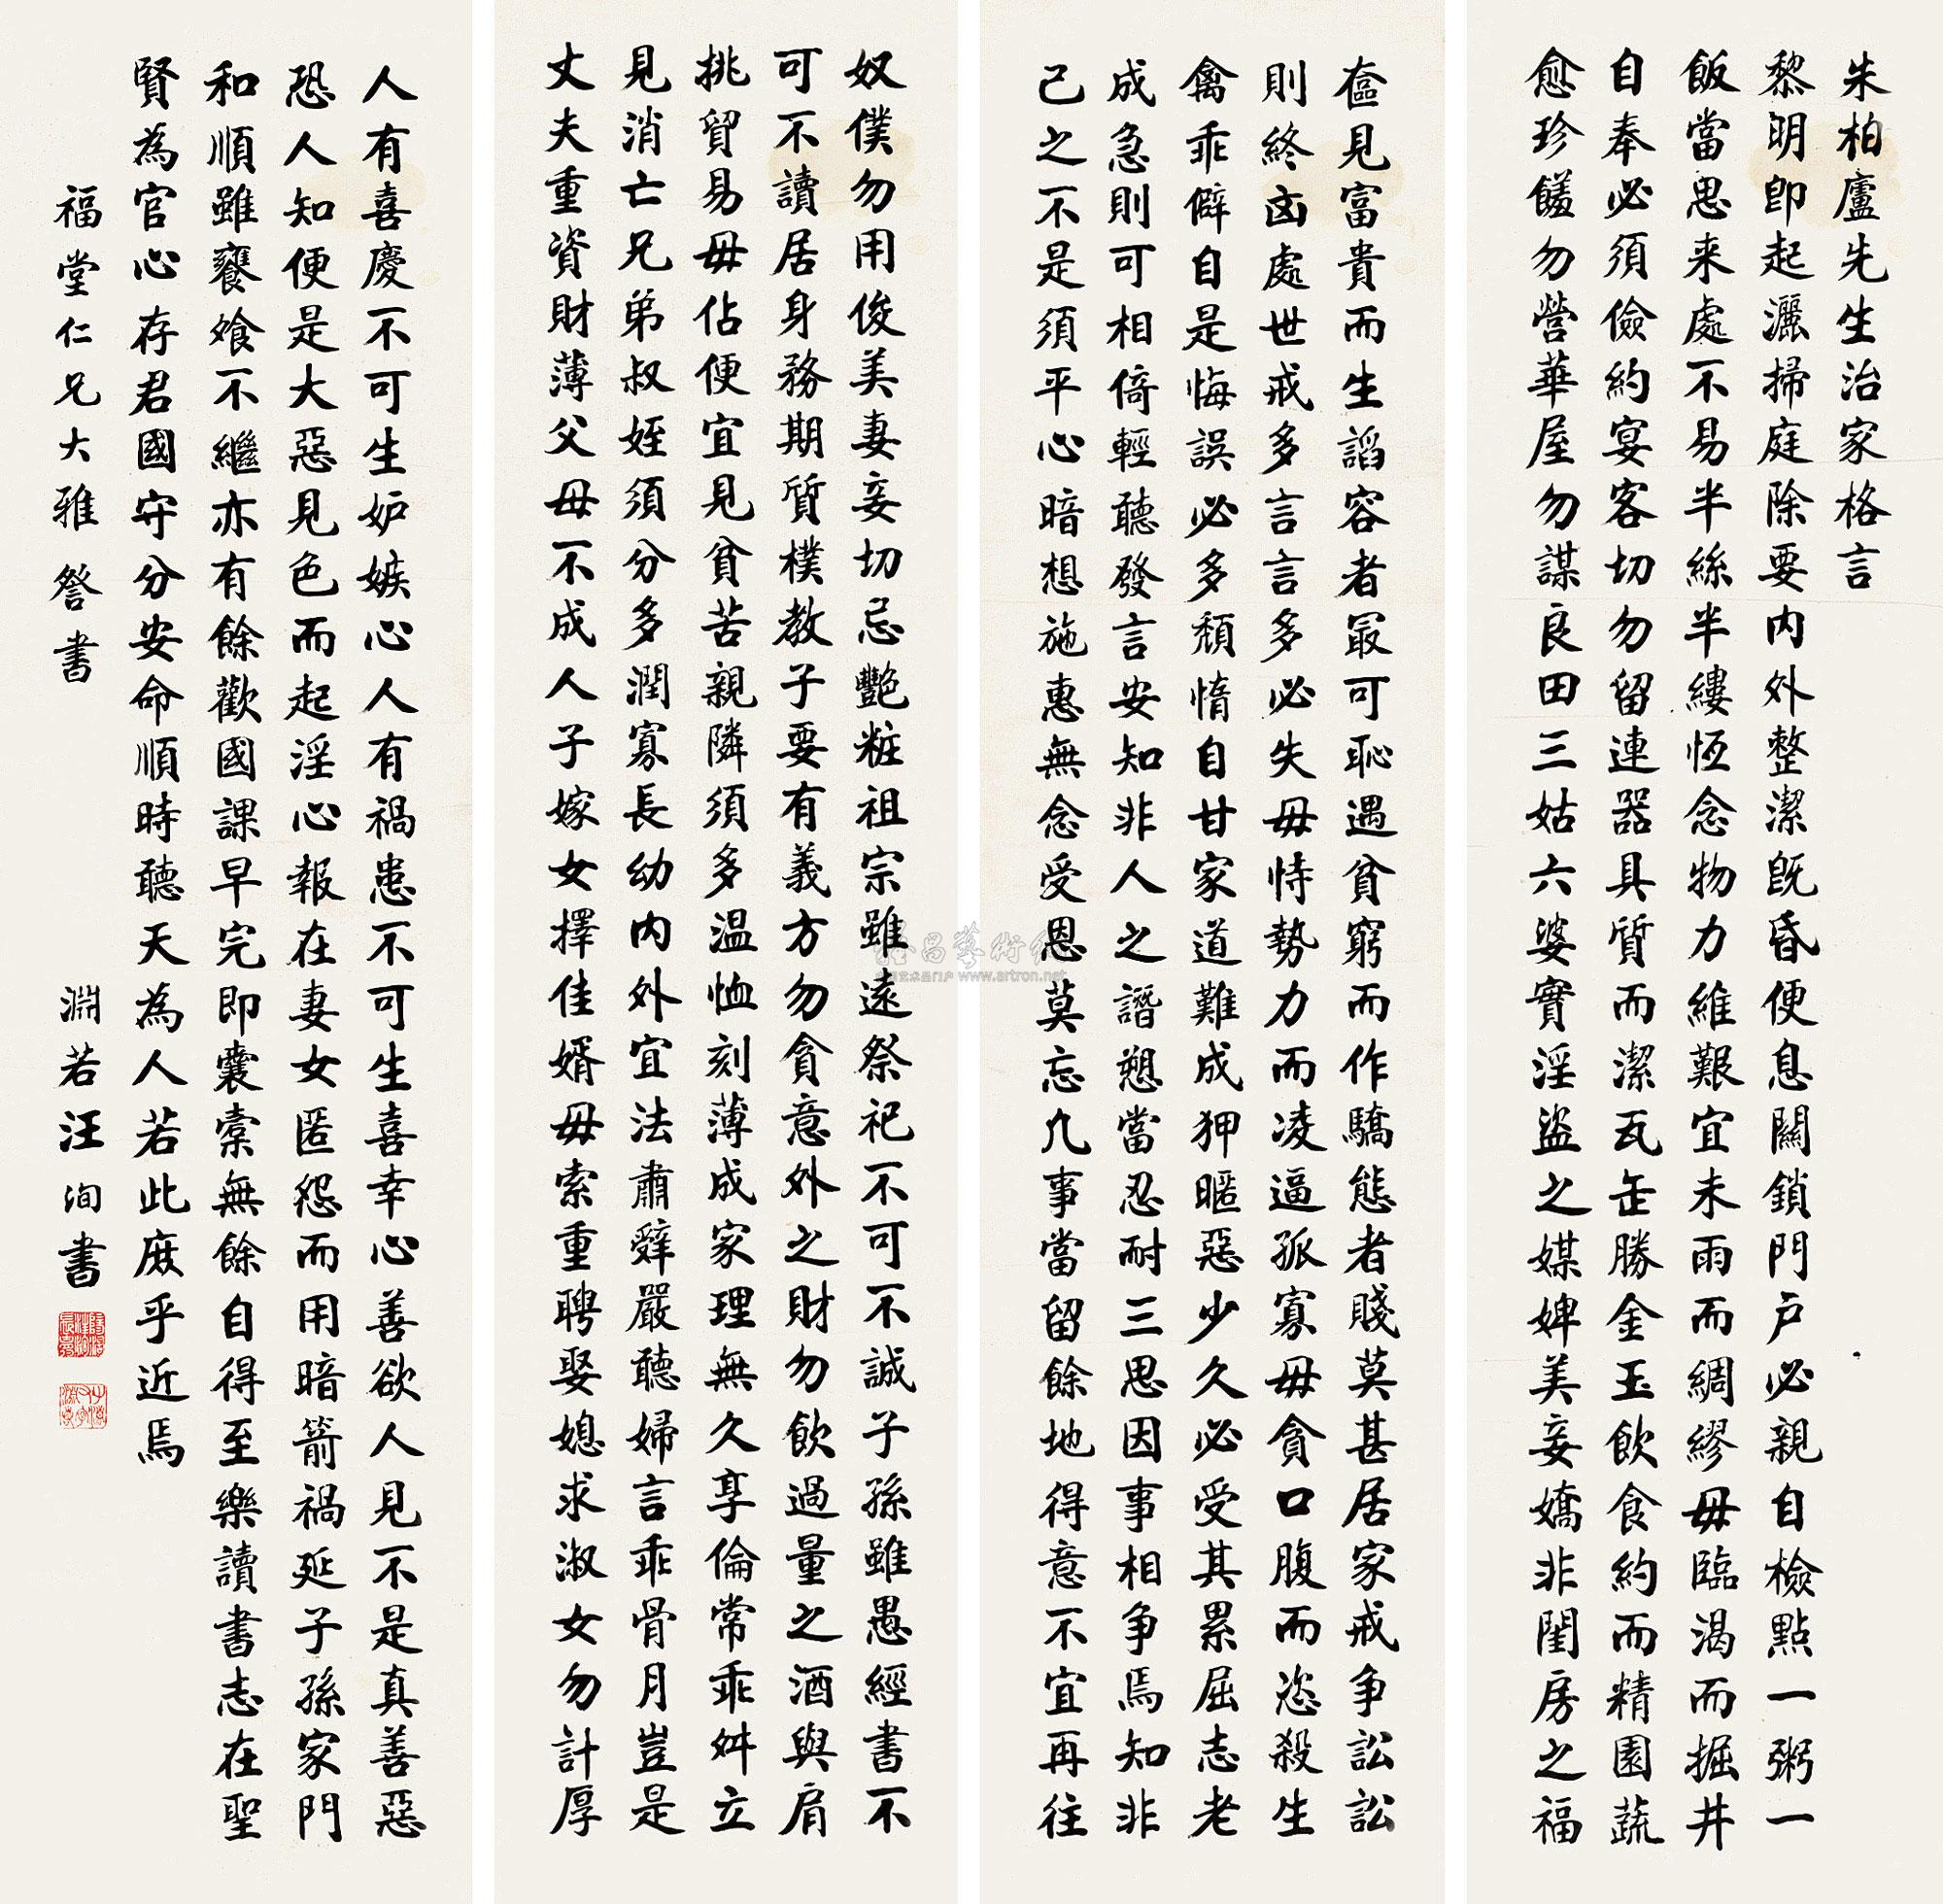 朱柏廬先生治家格言
黎明即起灑掃庭除要内外整潔既昏便息關鎖門户必親自檢點一粥一
飯當思来處不易半絲半縷恆念物力維艱宜未雨而綢繆毋臨渴而掘井
自奉必須儉約宴客切勿留連器具質而潔瓦缶勝金玉飲食約而精園蔬
愈珍饈勿營華屋勿謀良田三姑六婆實淫盜之媒婢美妾嬌非閨房之福
奩見富貴而生諂容者最可恥遇貧窮而作驕態者賤莫甚居家戒争訟訟
則終凶處世戒多言言多必失毋恃勢力而凌逼孤寡毋貪口腹而恣殺生
禽乖僻自是悔誤必多頹惰自甘家道難成狎暱惡少久必受其累屈志老
成急則可相倚輕聽發言安知非人之譖愬當忍耐三思因事相争焉知非
己之不是須平心暗想施惠無念受恩莫忘凡事當留餘地得意不宜再往
奴僕勿用俊美妻妾切忌艷粧祖宗雖遠祭祀不可不誠子孫雖愚經書不
可不讀居身務期質樸教子要有義方勿貪意外之財勿飲過量之酒與肩
挑貿易毋佔便宜見貧苦親隣須多温恤刻薄成家理無久享倫常乖舛立
見消亡兄弟叔姪須分多潤寡長幼内外宜法肅辭嚴聽婦言乖骨月豈是
丈夫重資財薄父母不成人子嫁女擇佳婿毋索重聘娶媳求淑女勿計厚
人有喜慶不可生妒嫉心人有禍患不可生喜幸心善欲人見不是真善惡
恐人知便是大惡見色而起淫心報在妻女匿怨而用暗箭禍延子孫家門
和順雖饔飧不繼亦有餘歡國課早完即囊橐無餘自得至樂讀書志在聖
賢為官心存君國守分安命順時聽天為人若此庶乎近焉
福堂仁兄大雅詧書
淵若汪洵書
www.artron.net